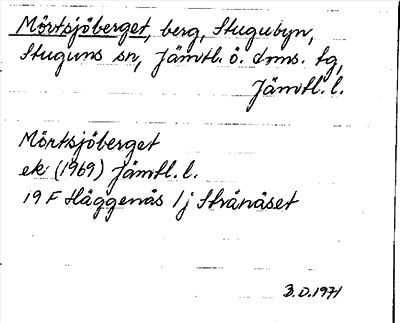 Mörtsjöberget, berg, Stugubyn,
Stuguns sn, Jämtl. ö. doms. tg,
Jämtl. l.
Mörtsjöberget
ek (1969) Jämtl. l.
19 F Häggenås 1 j Strånäset
B.D. 1971